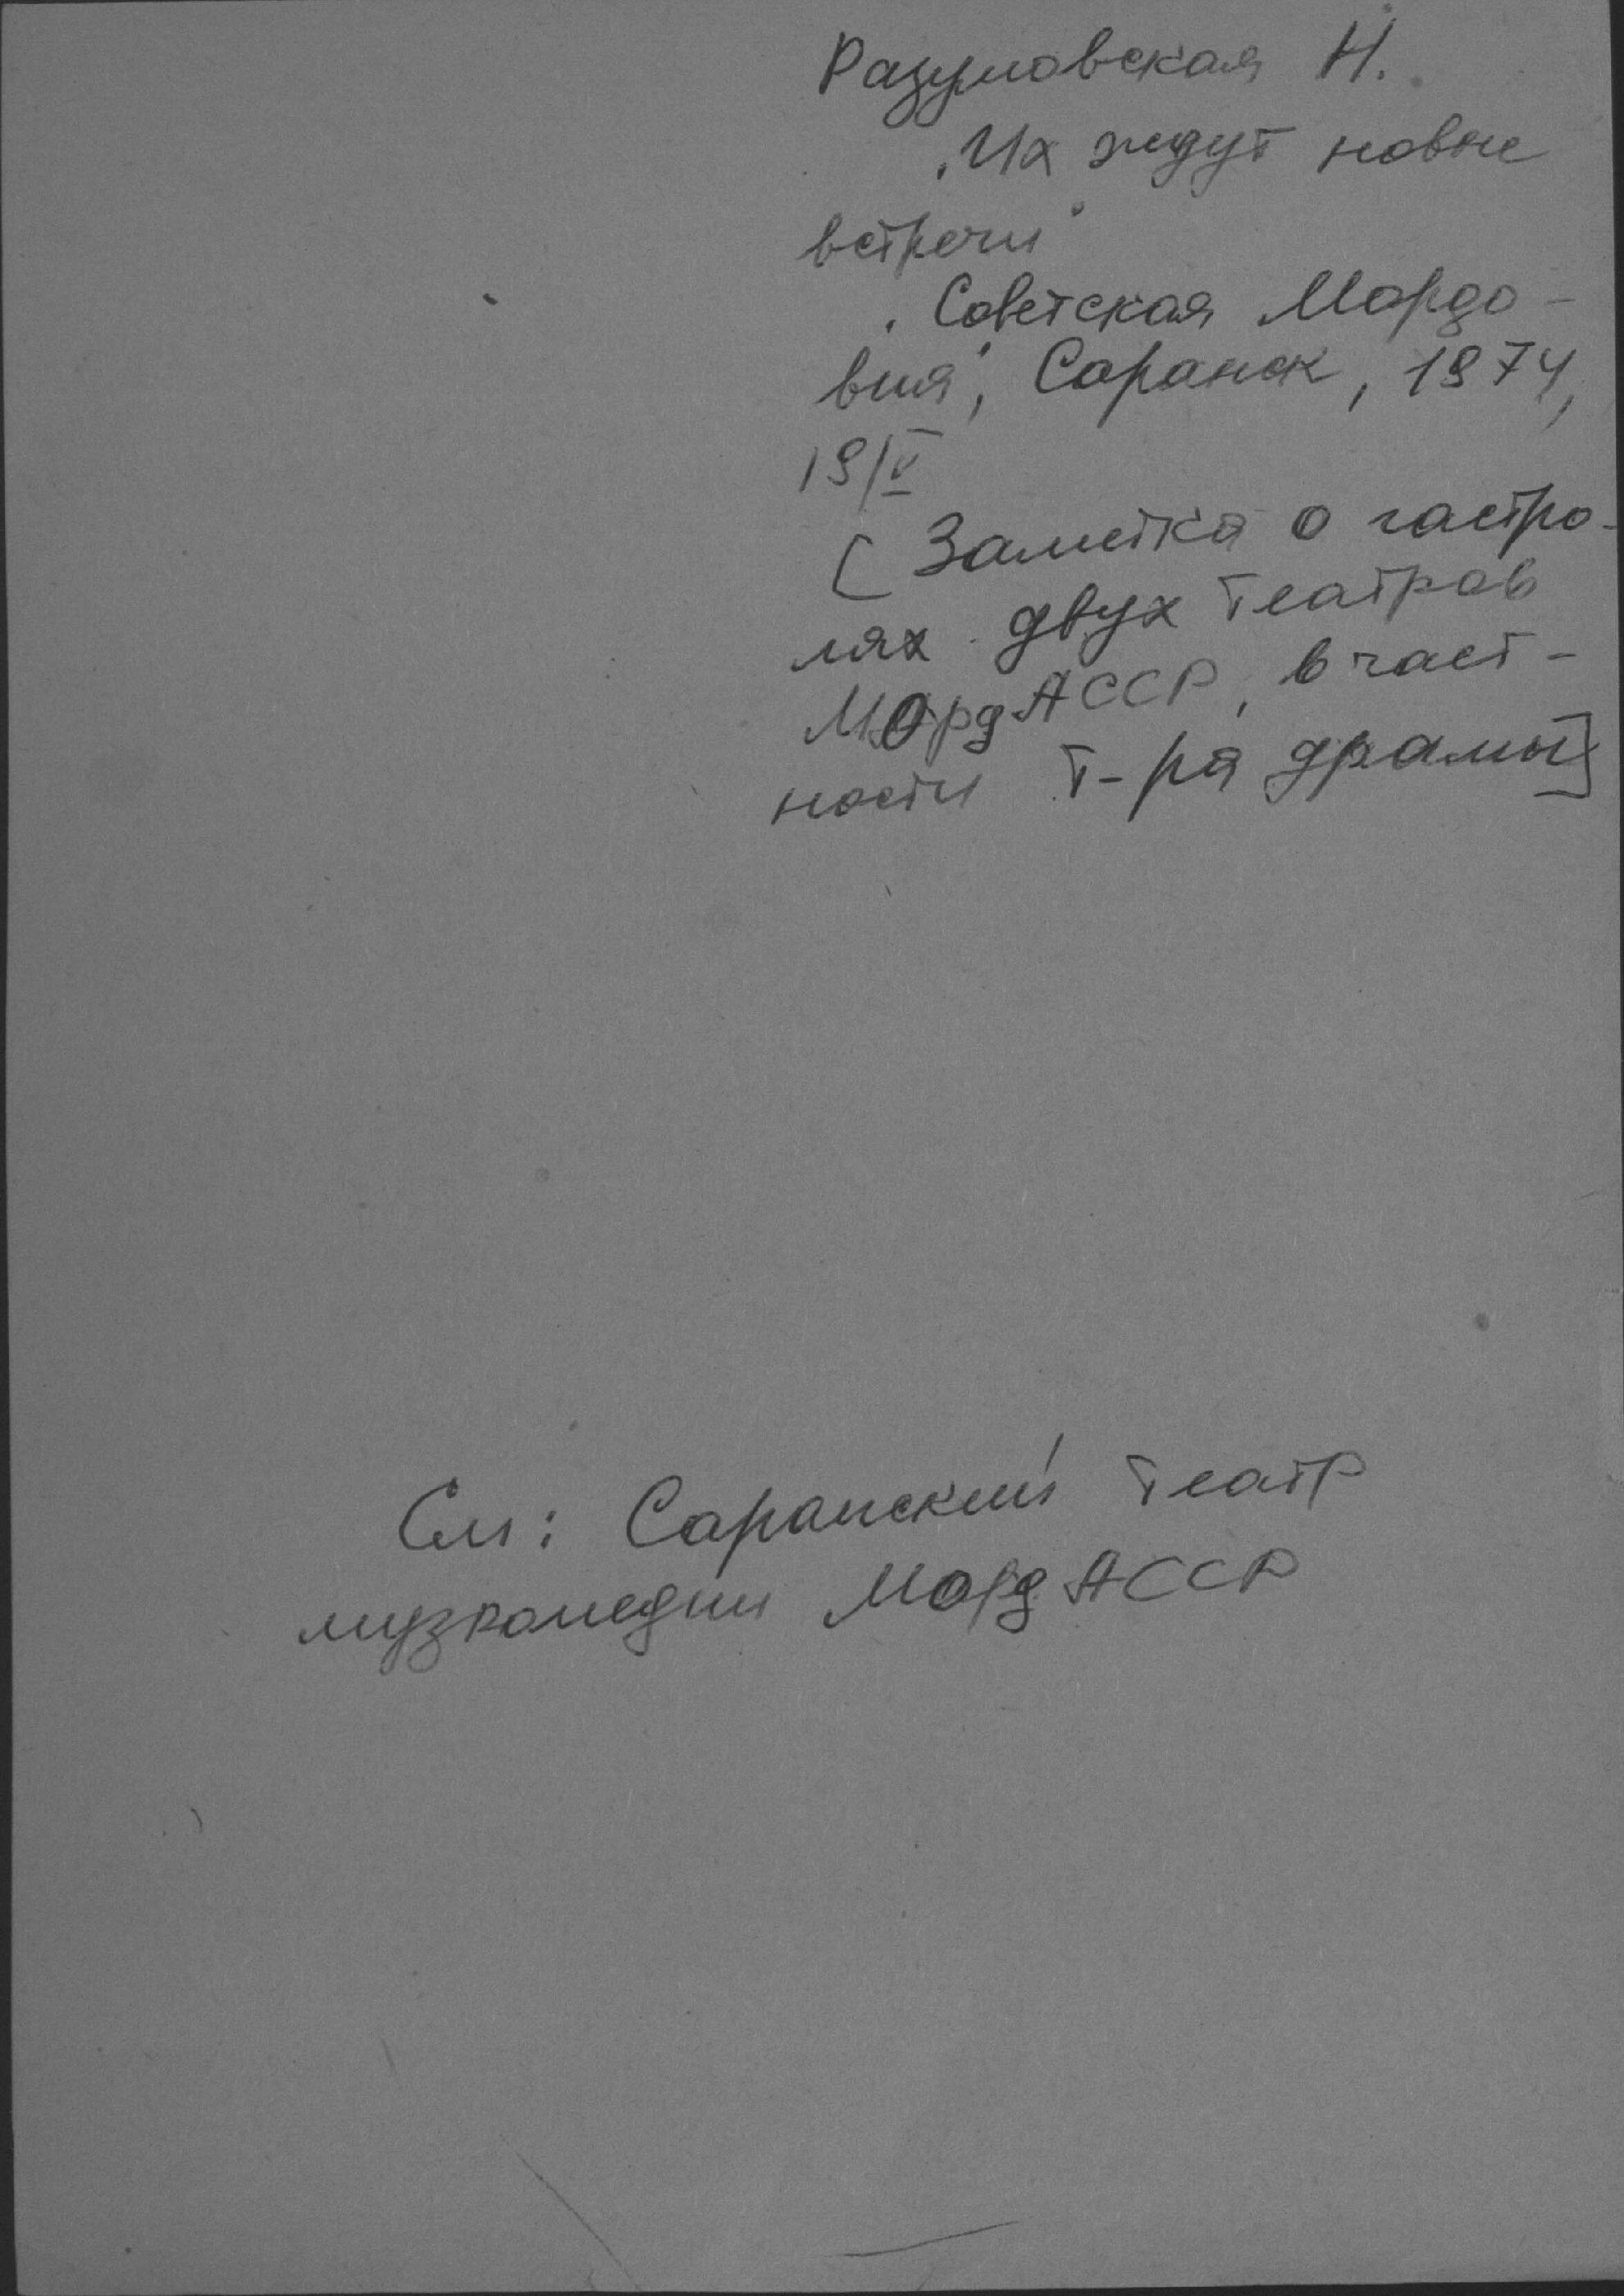 Разумовская Н.
„Их ждут новые
встречи"
„Советская Мордо-
вия", Саранск, 1974,
19/V
[Заметка о гастро-
лях двух театров
МордАССР, в част-
ности т-ра драмы]
См: Саранский театр
музкомедии МордАССР